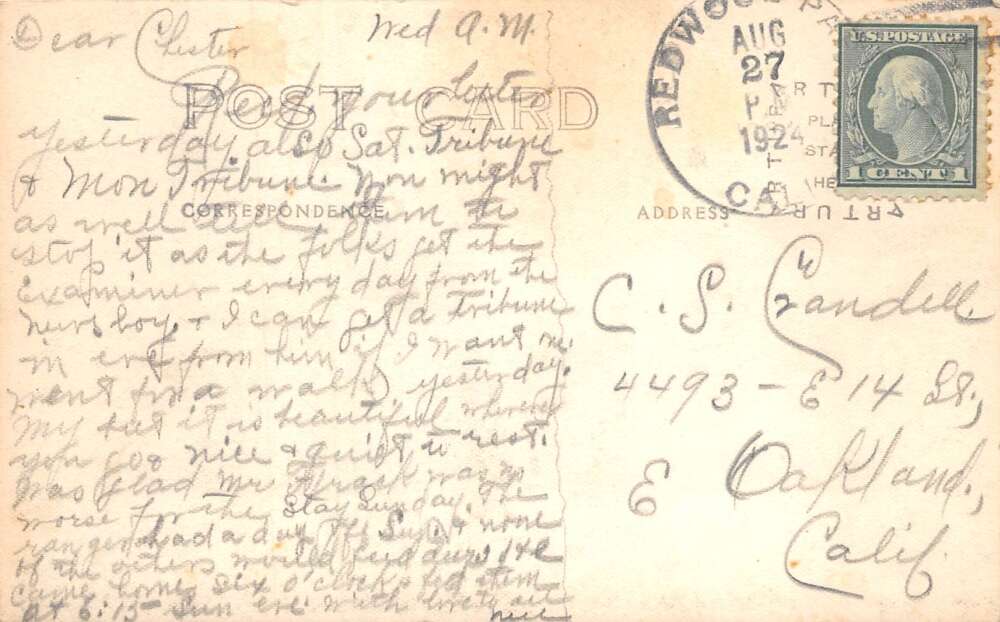 Dear Chester Wed A.M.
POST CARD
Recd your letter
yesterday also Sat. Tribune
& Mon Tribune. You might
as well tell them to
CORRESPONDENCE
stop it as the folks get the
Examiner every day from the
news boy & I can get a Tribune
in eve from him if I want one.
Went for a walk yesterday.
My but it is beautiful wherever
you go & nice & quiet to rest.
Was glad Mr was no
worse for the stay Sunday. The
ranger had a day off Sun. & none
of the others would feed deer &
came home six o'clock & fed them
at 6:15 Sun eve. With love to all
REDWOOD PA
AUG
27
PM
1924
CAL
U.S. POSTAGE
1 CENT 1
ARTURA
PLA
STA
HE
ADDRESS
C. S. Crandell.
4493 - E 14 St.,
E Oakland,
Calif.